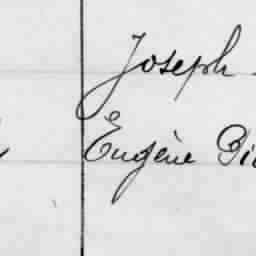 Joseph
Eugène